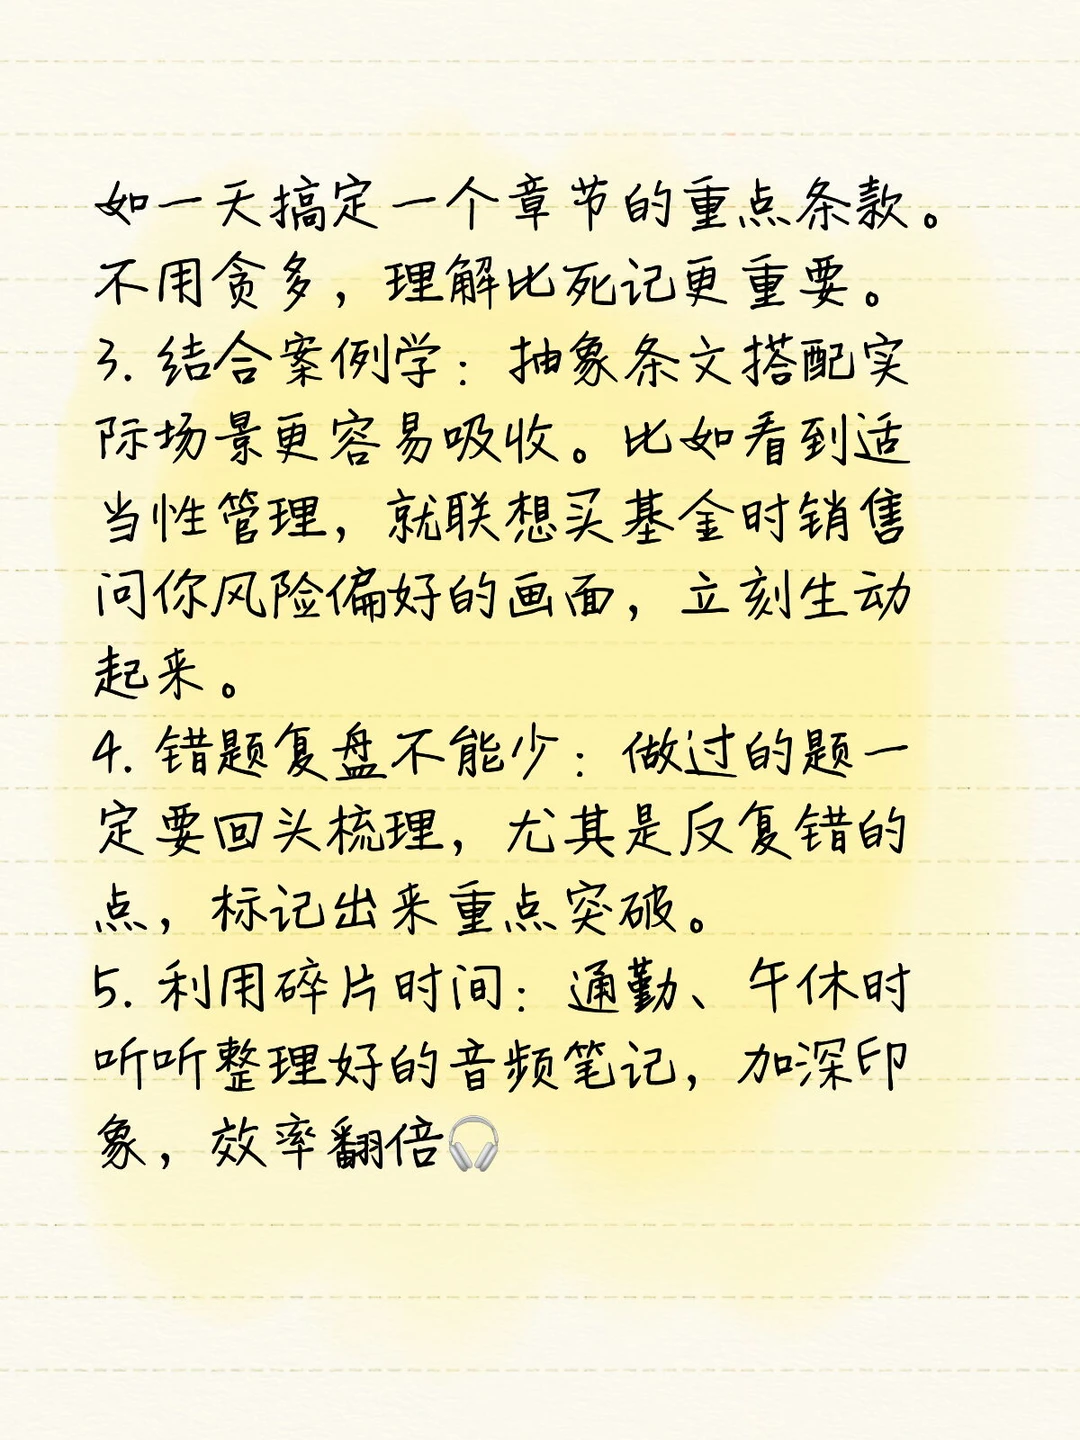 如一天搞定一个章节的重点条款。
不用贪多，理解比死记更重要。
3. 结合案例学：抽象条文搭配实
际场景更容易吸收。比如看到适
当性管理，就联想买基金时销售
问你风险偏好的画面，立刻生动
起来。
4. 错题复盘不能少：做过的题一
定要回头梳理，尤其是反复错的
点，标记出来重点突破。
5. 利用碎片时间：通勤、午休时
听听整理好的音频笔记，加深印
象，效率翻倍🎧